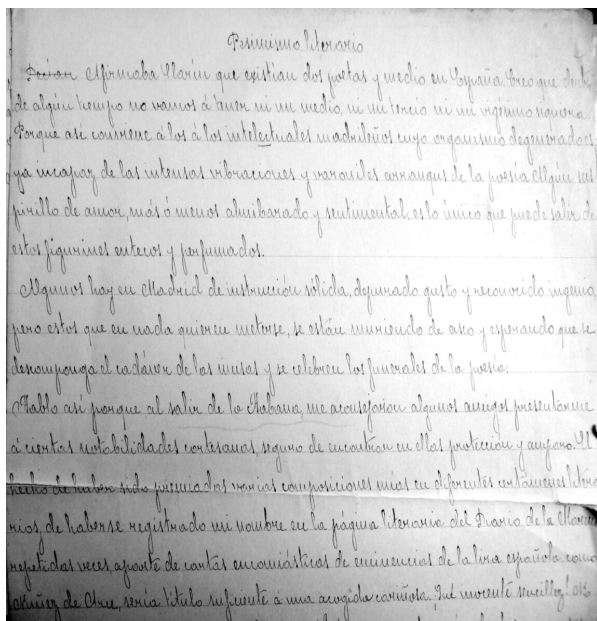 Pesimismo literario
Afirmaba Clarín que existían dos poetas y medio en España. Creo que dentro
de algún tiempo no vamos á tener ni un medio, ni un tercio ni un vigésimo siquiera.
Porque así conviene á los á los intelectuales madrileños cuyo organismo degenerado es
ya incapaz de las intensas vibraciones y varoniles arranques de la poesía. Algún sus
pirillo de amor, más ó menos almibarado y sentimental, es lo único que puede salir de
estos figurines entecos y perfumados.
Algunos hay en Madrid de instrucción sólida, depurado gusto y reconocido ingenio,
pero estos que en nada quieren meterse, se están muriendo de asco y esperando que se
descomponga el cadáver de las musas y se celebren los funerales de la poesía.
Hablo así porque al salir de la Habana, me aconsejaron algunos amigos presentarme
á ciertas notabilidades cortesanas, seguro de encontrar en ellas protección y amparo. El
hecho de haber sido premiadas varias composiciones mías en diferentes certámenes litera
rios, de haberse registrado mi nombre en la página literaria del Diario de la Marina
repetidas veces, aparte de cartas encomiásticas de eminencias de la lira española como
Núñez de Arce, sería título suficiente á una acogida cariñosa. ¡Qué inocente sencillez!